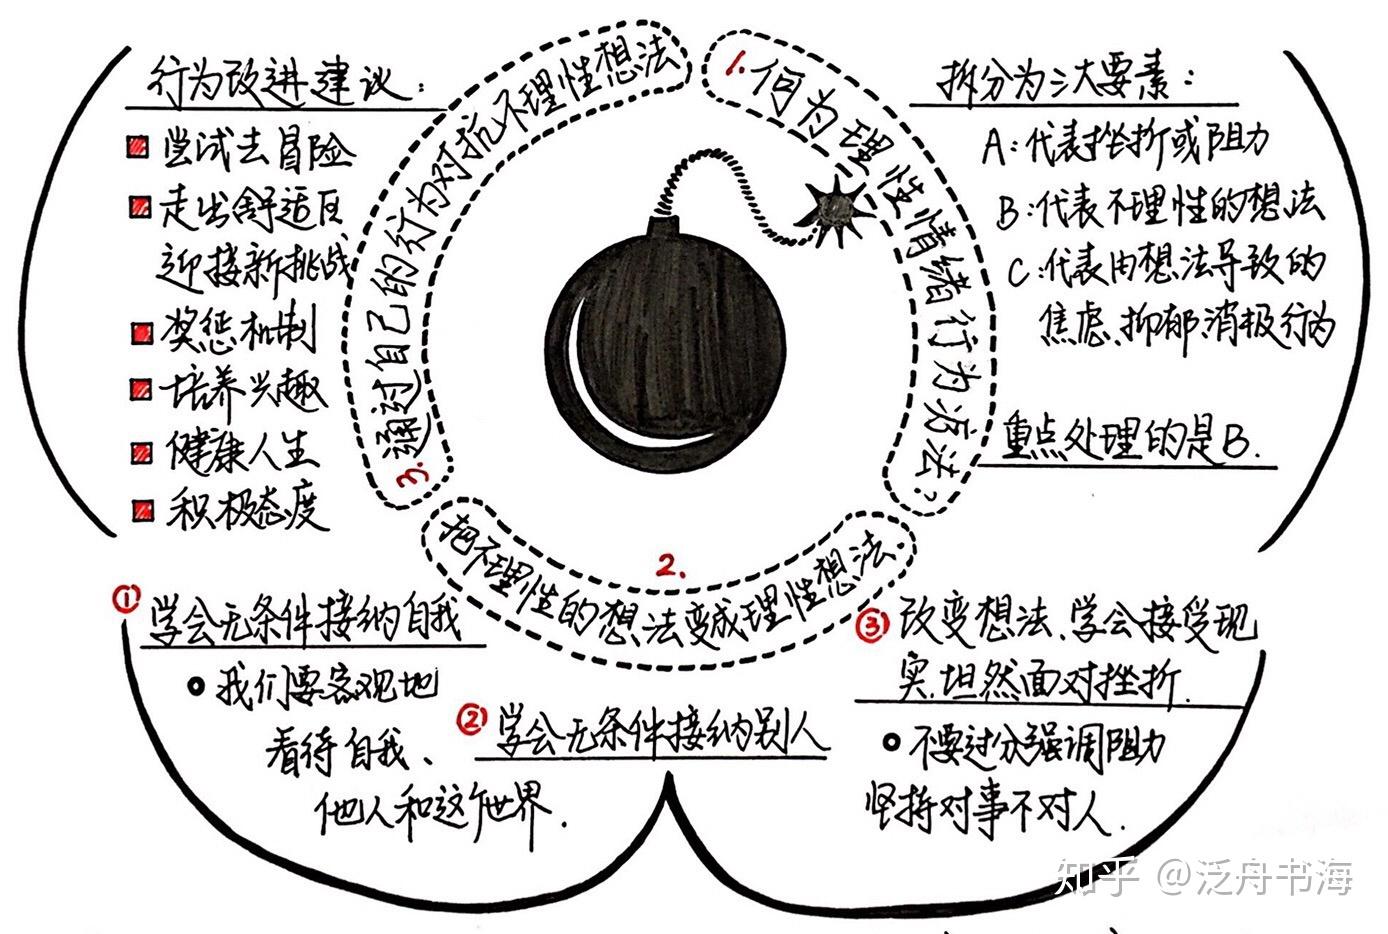 1. 何为理性情绪行为疗法?
拆分为三大要素:
A:代表挫折或阻力
B:代表不理性的想法
C:代表由想法导致的
焦虑、抑郁、消极行为
重点处理的是B.
2.
把不理性的想法变成理性想法.
① 学会无条件接纳自我
我们要客观地
看待自我、
他人和这个世界.
② 学会无条件接纳别人
③ 改变想法、学会接受现
实、坦然面对挫折.
不要过分强调阻力
坚持对事不对人.
3. 通过自己的行为对抗不理性想法
行为改进建议:
尝试去冒险
走出舒适区
迎接新挑战
奖惩机制
培养兴趣
健康人生
积极态度
知乎 @泛舟书海